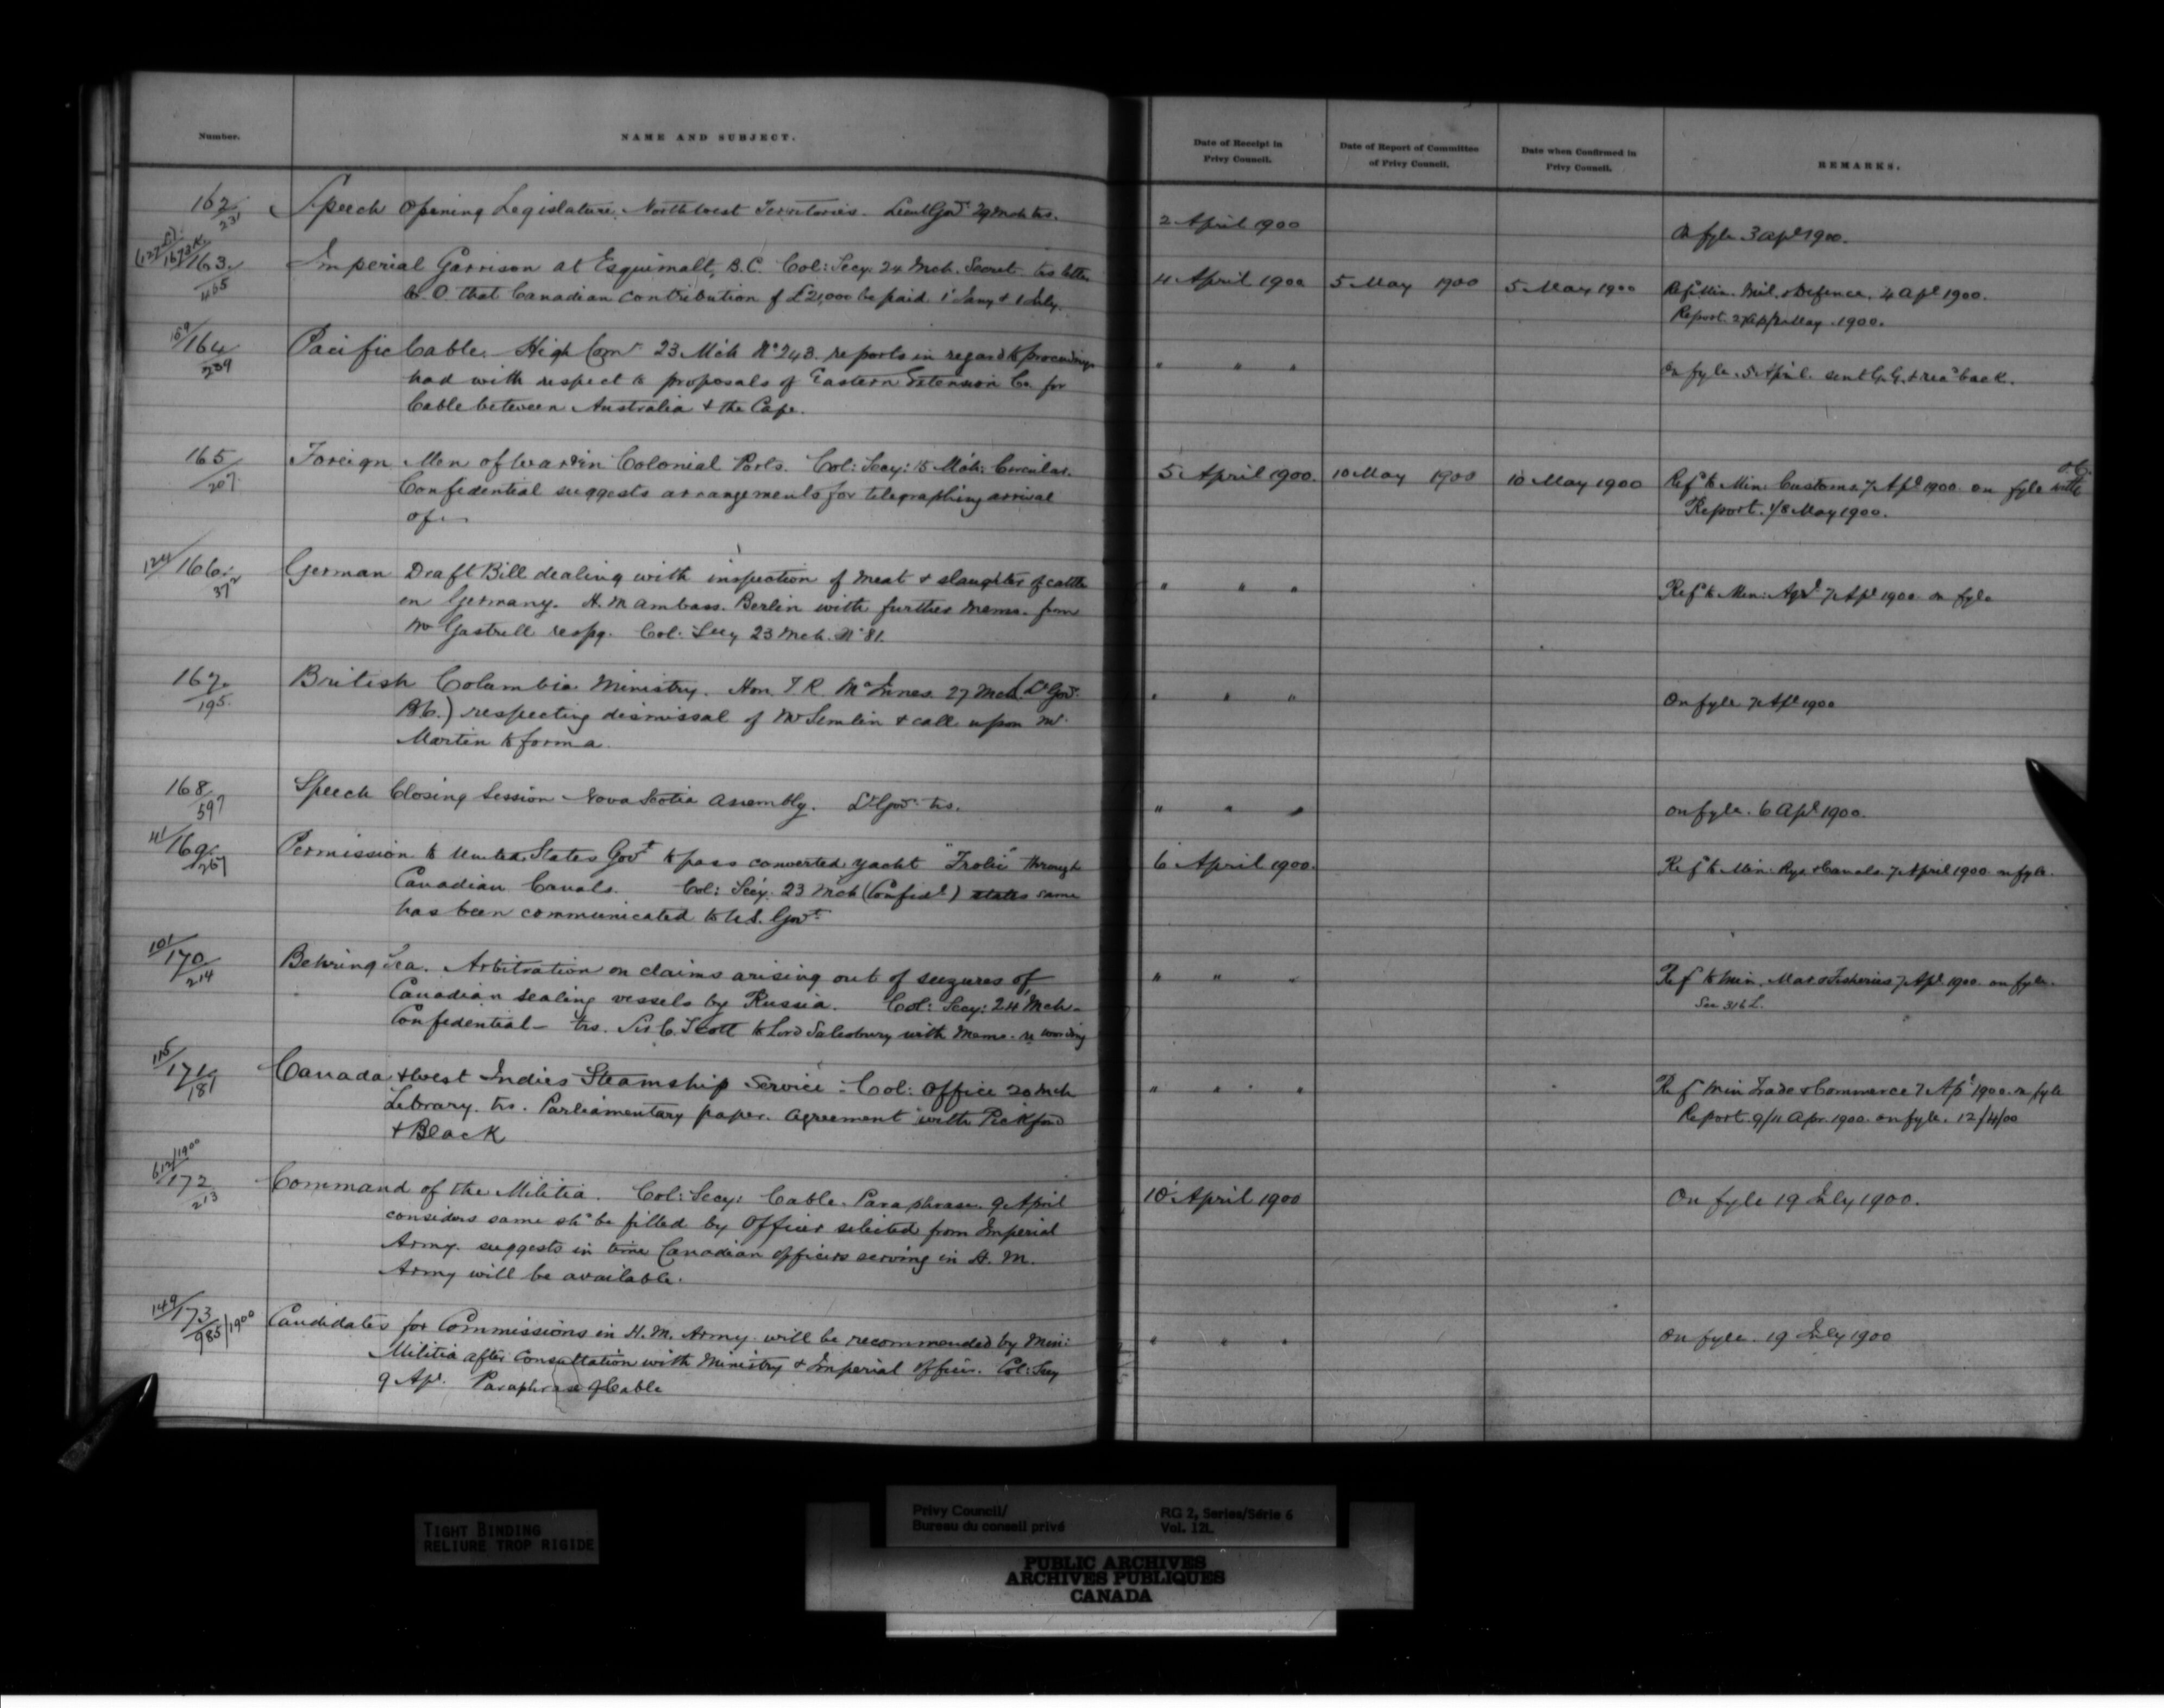 Number.
NAME AND SUBJECT.
Date of Receipt in
Privy Council.
Date of Report of Committee
of Privy Council.
Date when Confirmed in
Privy Council.
REMARKS.
162
231
Speech Opening Legislature North West Territories. Lieut Govr 29 Mch trs.
2 April 1900
On fyle 3 Apl 1900.
163
465
Imperial Garrison at Esquimalt, B.C. Col: Secy. 24 Mch. Secret trs letter
W.O that Canadian contribution of £21,000 be paid 1 Jany & 1 July.
4 April 1900
5 May 1900
5 May 1900
Ref Min. Mil. & Defence. 4 Apl 1900.
Report May 1900.
159/164
209
Pacific Cable. High Comr 23 Mch No 243. reports in regard to proceedings
had with respect to proposals of Eastern Extension Co. for
Cable between Australia & the Cape.
" " "
On fyle. 5 April. sent G.G. & recd back.
165
207
Foreign Men of War in Colonial Ports. Col: Secy: 15 Mch: Circular.
Confidential suggests arrangements for telegraphing arrival
of.
5 April 1900.
10 May 1900
10 May 1900
Refd to Min. Customs 7 Apl 1900. on fyle with O.C.
Report. 1/8 May 1900.
124/166
372
German Draft Bill dealing with inspection of meat & slaughter of cattle
in Germany. H. M Ambass. Berlin with further memo. from
Mr Gastrell respg. Col: Secy 23 Mch. No 81.
" " "
Refd to Min: Agrl 7 Apl 1900 on fyle
167
195
British Columbia Ministry. Hon. T R. McInnes. 27 Mch (Lt Govr
B.C.) respecting dismissal of Mr Semlin & call upon Mr
Martin to form a.
" " "
On fyle 7 Apl 1900
168
597
Speech Closing Session Nova Scotia Assembly. Lt Govr trs.
" " "
on fyle. 6 Apl 1900.
41/169
267
Permission to United States Govt to pass converted yacht "Frolic" through
Canadian Canals. Col: Secy. 23 Mch (Confidl) states same
has been communicated to U.S. Govt
6 April 1900.
Refd to Min. Rys & Canals 7 April 1900 on fyle.
101/170
214
Behring Sea. Arbitration on claims arising out of seizures of
Canadian Sealing vessels by Russia. Col: Secy: 24 Mch
Confidential — trs. Sir C. Scott to Lord Salisbury with Memo. re wording
" " "
Refd to Min. Mar & Fisheries 7 Apl 1900. on fyle.
See 316 L.
115/171
181
Canada & West Indies Steamship Service - Col: Office 20 Mch
Library. trs. Parliamentary paper. Agreement with Pickford
& Black
" " "
Ref Min Trade & Commerce 7 Apl 1900. on fyle
Report. 9/11 Apr. 1900. on fyle. 12/4/00
612/1900
172
213
Command of the Militia. Col: Secy: Cable. Paraphrase. 9 April
considers same shd be filled by Officer selected from Imperial
Army. suggests in time Canadian Officers serving in H. M.
Army will be available.
10 April 1900
On fyle 19 July 1900.
149/173
985/1900
Candidates for Commissions in H. M. Army will be recommended by Min:
Militia after Consultation with Ministry & Imperial Officer. Col: Secy
9 Apl. Paraphrase of Cable
" " "
On fyle. 19 July 1900
TIGHT BINDING
RELIURE TROP RIGIDE
Privy Council/
Bureau du conseil privé
RG 2, Series/Série 6
Vol. 121.
PUBLIC ARCHIVES
ARCHIVES PUBLIQUES
CANADA